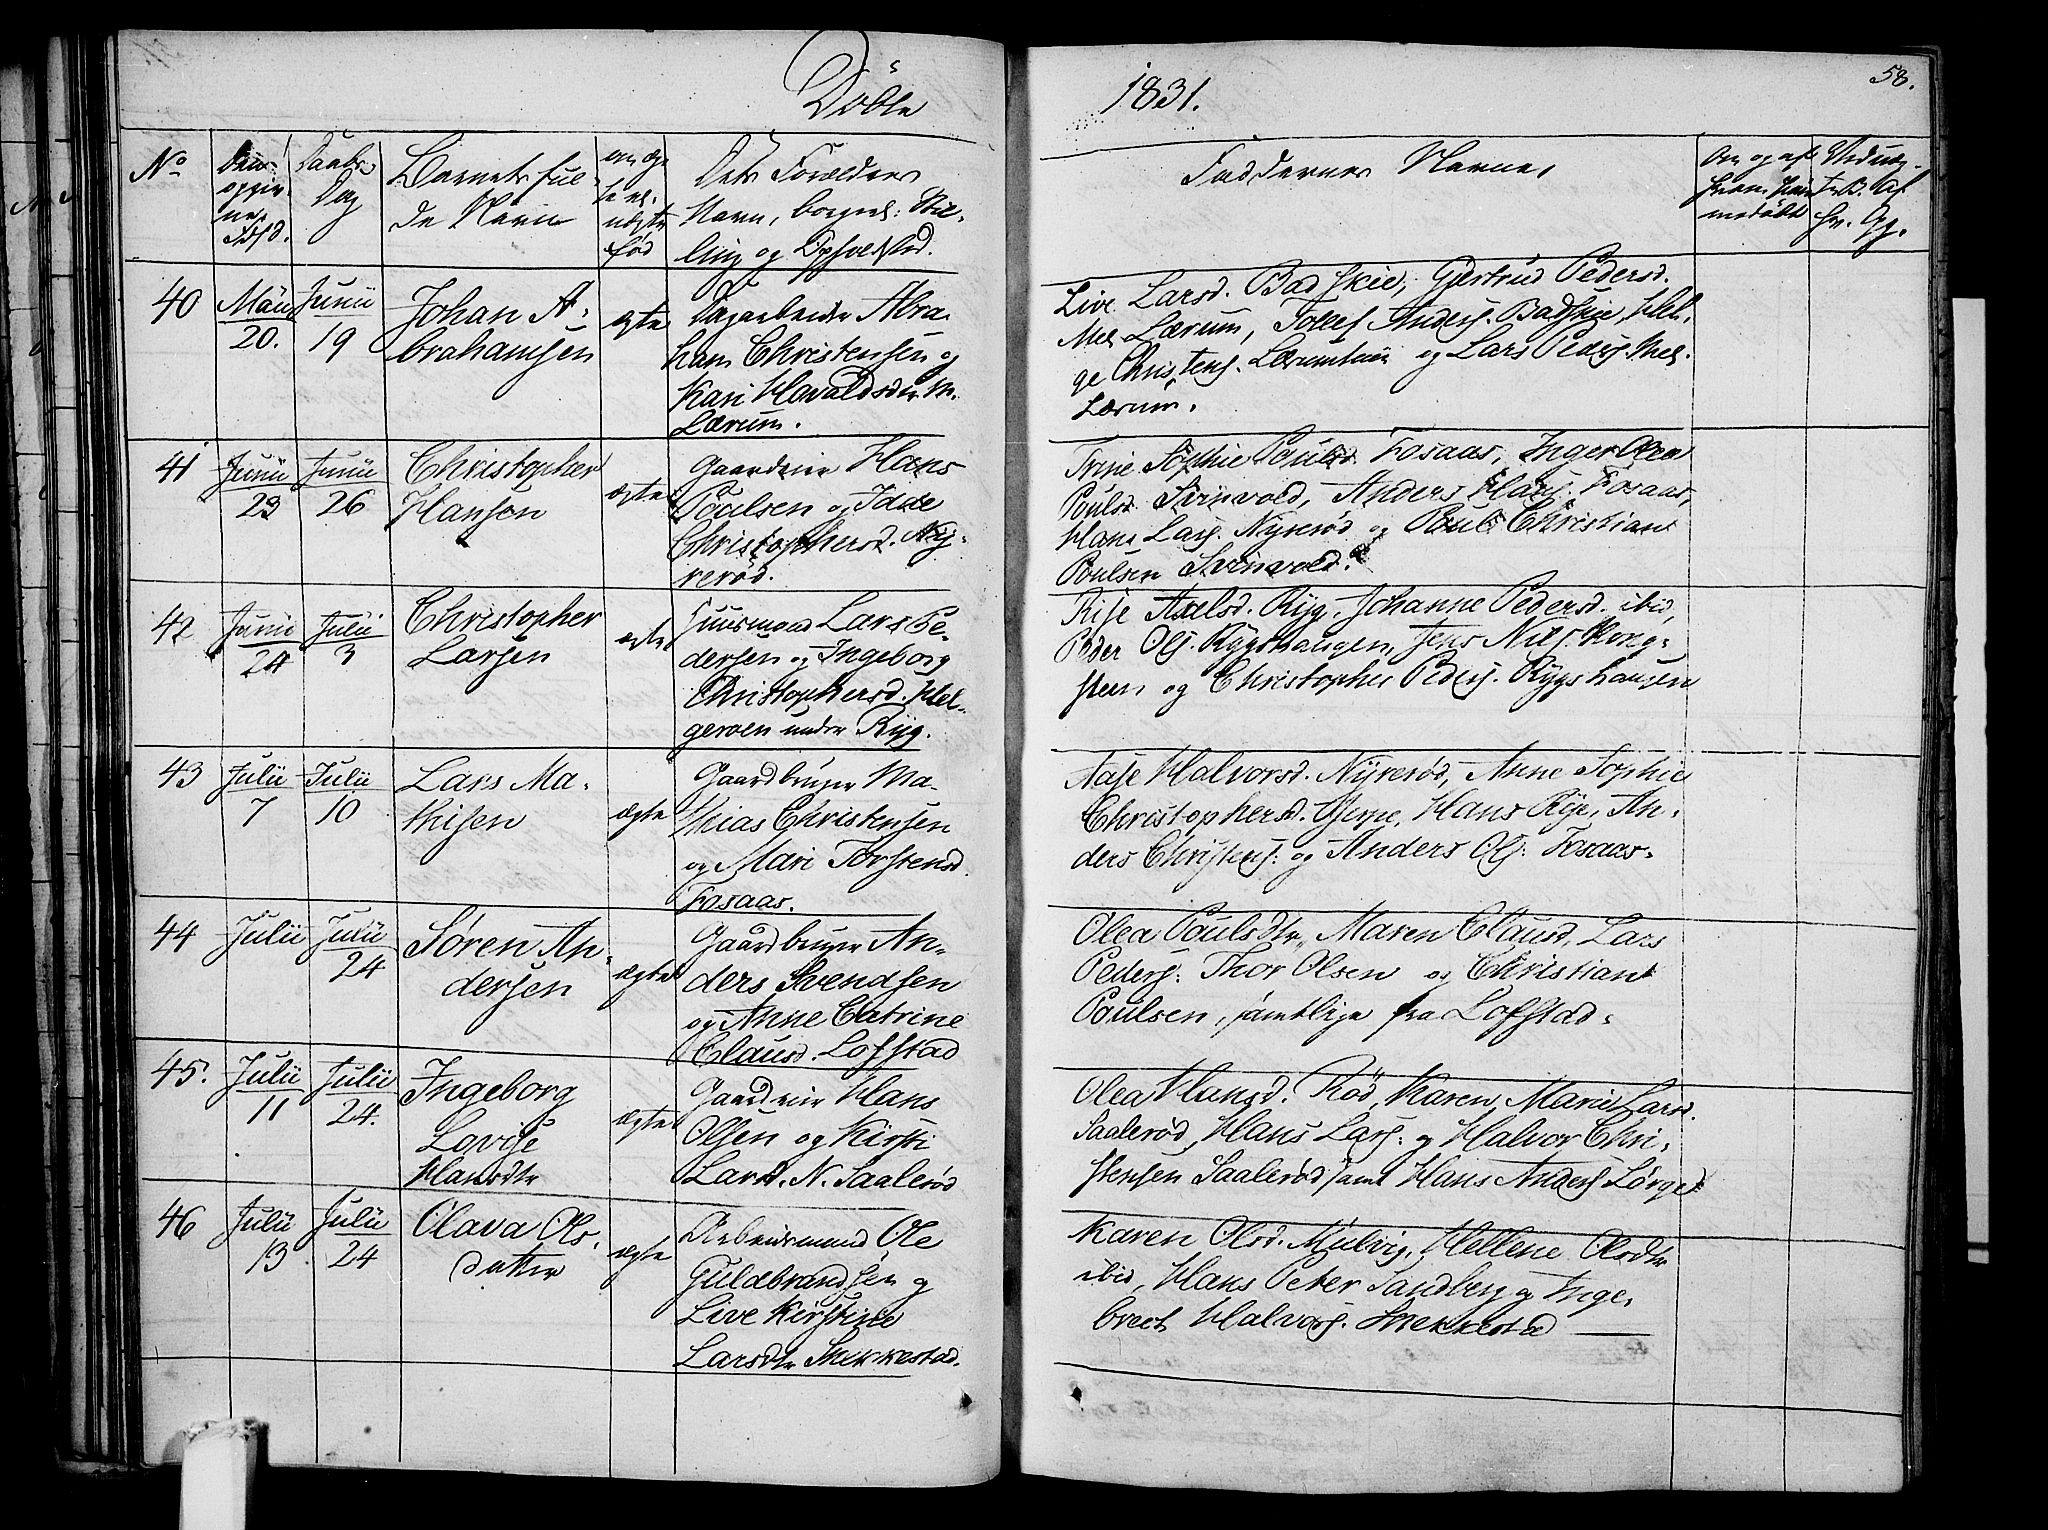 Döbte
1831.
58.
No
Dag
Barnets ful-
de Navn
om ægte
el.
uægte
fød
Dets Forældres
Navn, borgerl: Stil-
ling og Opholdsted.
Faddernes Navne,
40
Maii
20.
Junii
19
Johan A-
brahamsen
ægte
Dagarbeider Abra-
ham Christensen og
Kari Havaldsdtr M.
Lærum.
Live Larsd. Badskie, Gjertrud Pedersd.
Mel. Lærum, Tollef Anders. Badskie, Hel-
ge Christens. Lærum og Lars Peders. Mel.
Lærum.
41
Junii
23
Junii
26
Christopher
Hansen
ægte
Gaardeier Hans
Poulsen og Idde
Christophersd. Ny-
rerød.
Trine Sophie Poulsd Fosaas, Inger Olea
Poulsd Svinvold, Anders Hans. Fosaas,
Hans Lars. Nyrerød og Poul Christian
Poulsen Svinvold.
42
Junii
24
Julii
3
Christopher
Larsen
ægte
Huusmand Lars Pe-
dersen og Ingeborg
Christophersd. Hel-
geroen under Ryg.
Rise Axelsd. Ryg, Johanne Pedersd. ibid,
Peder Ols. Rygshaugen, Jens Nils.
steen og Christopher Peders. Rygshaugen
43
Julii
7
Julii
10
Lars Ma-
thisen
ægte
Gaardbruger Ma-
thias Christensen
og Mari Torstensd.
Fosaas.
Aase Halvorsd. Nyrerød, Anne Sophie
Christophersd. Gjerpe, Hans Rise, An-
ders Christens: og Anders Ols: Fosaas.
44
Julii
Julii
24
Søren An-
dersen
ægte
Gaardbruger An-
ders Svendsen
og Anne Catrine
Clausd. Lofstad
Olea Poulsdtr, Maren Clausd, Lars
Peders: Thor Olsen og Christian
Poulsen, samtlige fra Lofstad.
45.
Julii
11
Julii
24.
Ingeborg
Lovise
Hansdtr
ægte
Gaardeier Hans
Olsen og Kirsti
Larsd. N. Saalerød
Olea Hansd. Rød, Karen Marie Larsd.
Saalerød, Hans Lars: og Halvor Chri-
stensen Saalerød samt Hans Anders
46
Julii
13
Julii
24
Olava Ols-
datter
ægte
Arbeidsmand Ole
Guldbrandsen og
Live Kirstine
Larsdtr
Karen Olsd. Mulvig, Hellene Olsdtr
ibid, Hans Peter Sandberg og Inge-
brect Halvors.